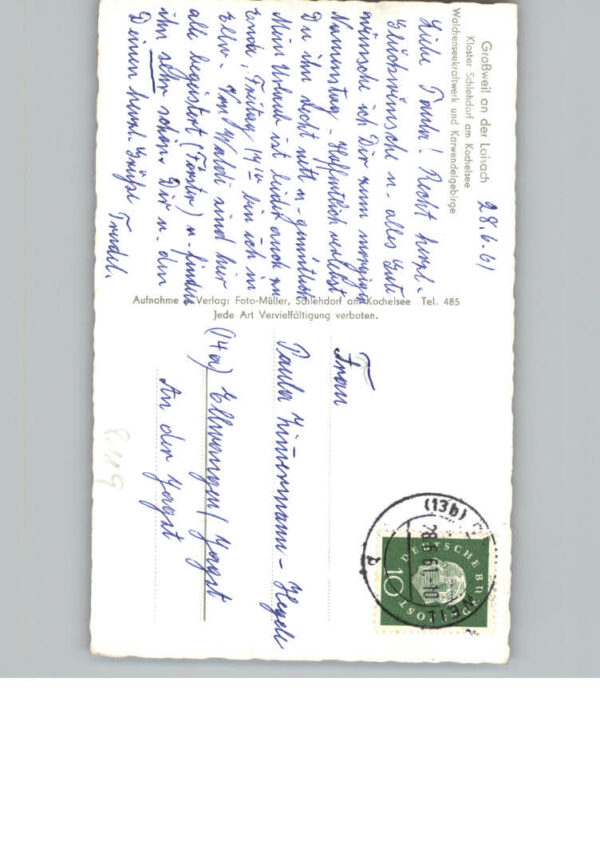 Großweil an der Loisach
Kloster Schlehdorf am Kochelsee
Walchenseekraftwerk und Karwendelgebirge
28.6.61
Liebe Paula! Recht herzl.
Glückwünsche u. alles Gute
wünsche ich Dir zum morgigen
Namenstag. Hoffentlich verlebst
Du ihn recht nett u. gemütlich
Mein Urlaub ist leider auch zu
Ende, Freitag 14 bin ich in
Ellw. Vom Wald sind hier
alle begeistert (Förster) u. finden
ihn sehr schön. Dir u. den
Deinen herzl. Grüße
Trudel.
Aufnahme u. Verlag: Foto-Müller, Schlehdorf am Kochelsee Tel. 485
Jede Art Vervielfältigung verboten.
Frau
Paula Zimmermann-Hegele
(14a) Ellwangen/Jagst
An der Jagst
(13b)
28.6.61
DEUTSCHE BUNDESPOST
10